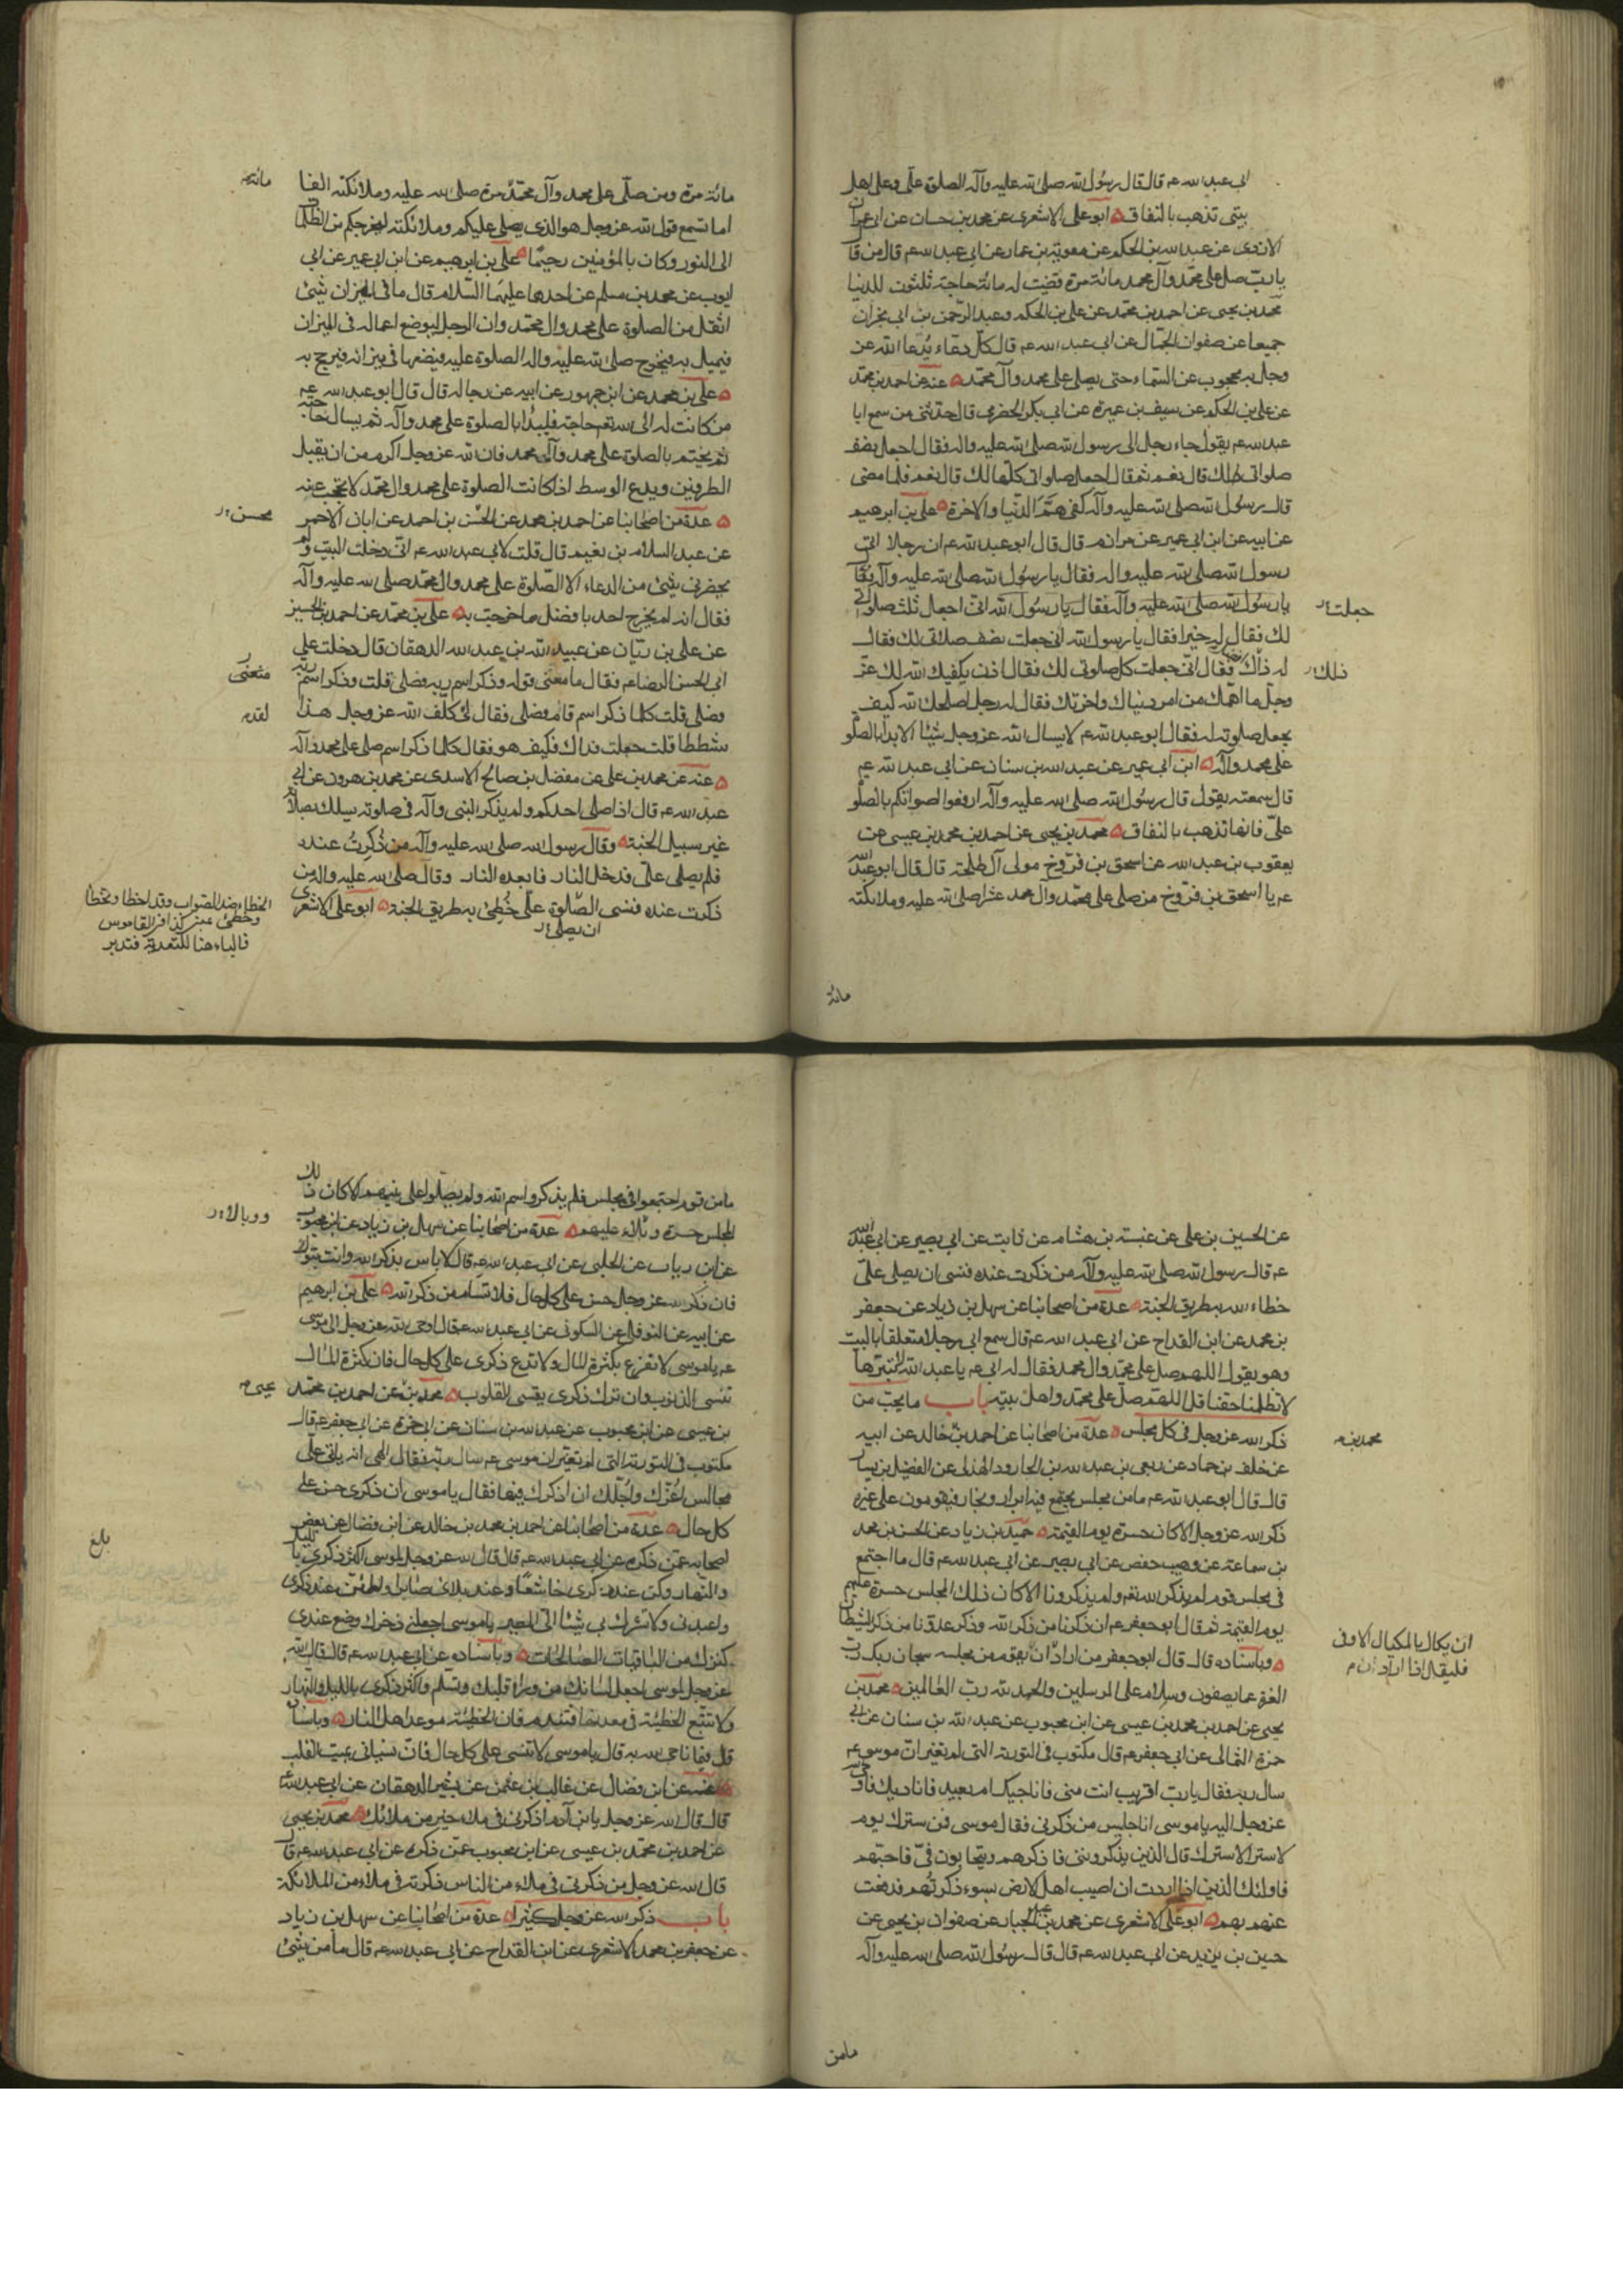 ابى عبد الله عم قال قال رسول الله صلى الله عليه وآله الصلوة علىّ وعلى اهل
بيتى تذهب بالنفاق ابو على الاشعرى عن محمد بن حسان عن ابى عمران
الازدى عن عبد الله بن الحكم عن معوية بن عمار عن ابى عبد الله عم قال من قا
يا ربّ صل على محمّد وآل محمد مائة مرة قضيت له مائة حاجة ثلثون للدنيا
محمد بن يحيى عن احمد بن محمّد عن على بن الحكم وعبد الرحمن بن ابى نجران
جميعا عن صفوان الجمّال عن ابى عبد الله عم قال كلّ دعاء يُدعا الله عز
وجل به محجوب عن السّماء حتى يصلى على محمد وآل محمّد عنه عن احمد بن محمّد
عن على بن الحكم عن سيف بن عميرة عن ابى بكر الحضرمى قال حدّثنى من سمع ابا
عبد الله عم يقول جاء رجل الى رسول الله صلى الله عليه واله فقال اجعل نصف
صلواتى لك قال نعم ثم قال اجعل صلواتى كلّها لك قال نعم فلما مضى
قال رسول الله صلى الله عليه وآله كفى همّ الدّنيا والاخرة على بن ابرهيم
عن ابيه عن ابن ابى عمير عن مرازم قال قال ابو عبد الله عم ان رجلا اتى
رسول الله صلى الله عليه واله فقال يا رسول الله صلى الله عليه وآله فقا
يا رسول الله صلى الله عليه وآله فقال يا رسول الله انى اجعل ثلث صلواتى
جعلت
لك فقال له خيرا فقال يا رسول الله انى جعلت نصف صلاتى لك فقال
له ذاك افضل فقال انى جعلت كل صلوتى لك فقال اذن يكفيك الله لك عزّ
ذلك
وجلّ ما اهمّك من امر دنياك واخرتك فقال له رجل اصلحك الله كيف
يجعل صلوته له فقال ابو عبد الله عم لا يسال الله عز وجل شيئا الا بدا بالصلو
على محمد وآله ابن ابى عمير عن عبد الله بن سنان عن ابى عبد الله عم
قال سمعته يقول قال رسول الله صلى الله عليه وآله ارفعوا اصواتكم بالصلو
علىّ فانها تذهب بالنفاق محمد بن يحيى عن احمد بن محمد بن عيسى عن
يعقوب بن عبد الله عن اسحق بن فرّوخ مولى آل طلحة قال قال ابو عبد الله
عم يا اسحق بن فرّوخ من صلى على محمّد وآل محمد عشرا صلى الله عليه وملائكته
مائة
مائة مرة ومن صلّى على محمد وآل محمّد مائة مرة صلى الله عليه وملائكته الفا
اما تسمع قول الله عز وجل هو الذى يصلى عليكم وملائكته ليخرجكم من الظلما
الى النور وكان بالمؤمنين رحيمًا على بن ابرهيم عن ابن ابى عمير عن ابى
ايوب عن محمد بن مسلم عن احدهما عليهما السّلام قال ما فى الميزان شيئ
اثقل من الصلوة على محمد وال محمّد وان الرجل ليوضع اعماله فى الميزان
فيميل به فيخرج صلى الله عليه واله الصلوة عليه فيضعها فى ميزانه فيرجح به
على بن محمد عن ابن جمهور عن ابيه عن رجاله قال قال ابو عبد الله عم
من كانت له الى الله تعم حاجة فليبدا بالصلوة على محمد وآله ثم يسال حاجته
ثم يختم بالصلوة على محمد وآل محمد فان الله عز وجل اكرم من ان يقبل
الطرفين ويدع الوسط اذا كانت الصلوة على محمد وال محمّد لا تحجب عنه
عدة من اصحابنا عن احمد بن محمد عن الحسن بن احمد عن ابان الاحمر
محسن
عن عبد السلام بن نعيم قال قلت لابى عبد الله عم انى دخلت البيت ولم
يحضرنى شيئ من الدعاء الا الصّلوة على محمد وال محمّد صلى الله عليه وآله
فقال انه لم يخرج احد بافضل ما خرجت به على بن محمّد عن احمد بن الحسين
عن على بن ريّان عن عبيد الله بن عبد الله الدهقان قال دخلت على
ابى الحسن الرضا عم فقال ما معنى قوله وذكر اسم ربه فصلى قلت وذكر اسم ربه
فصلى قلت كلما ذكر اسم قام فصلى فقال لى كلّف الله عز وجل هذا
لقد
شططا قلت جعلت فداك فكيف هو فقال كلما ذكر اسم صلى على محمد وآله
عنه عن محمد بن على عن مفضل بن صالح الاسدى عن محمد بن هرون عن ابى
عبد الله عم قال اذا صلى احدكم ولم يذكر النبى وآله فى صلوته يسلك بصلا
غير سبيل الجنة وقال رسول الله صلى الله عليه وآله من ذُكِرتُ عنده
فلم يصلى علىّ فدخل النار فابعده النار وقال صلى الله عليه واله من
ذكرت عنده فنسى الصّلوة علىّ خُطِئ به طريق الجنة ابو على الاشعرى
ان يصلى
الخطاء ضد الصواب وقد اخطا وتخطا
وخطئ بمعنى كذا فى القاموس
فالباء هنا للتعدية فتدبر
عن الحسين بن على عن عنبسة بن هشام عن ثابت عن ابى بصير عن ابى عبد الله
عم قال رسول الله صلى الله عليه وآله من ذكرت عنده فنسى ان يصلى علىّ
خطاء الله به طريق الجنة عدة من اصحابنا عن سهل بن زياد عن جعفر
بن محمد عن ابن القداح عن ابى عبد الله عم قال سمع ابى رجلا متعلقا بالبيت
وهو يقول اللهم صل على محمّد وال محمد فقال له ابى عم يا عبد الله لا تبترها
لا تظلمنا حقنا قل اللهم صلّ على محمّد واهل بيته باب ما يجب من
ذكر الله عز وجل فى كل مجلس عدة من اصحابنا عن احمد بن خالد عن ابيه
محمد بن
عن خلف بن حماد عن ربعى بن عبد الله بن الجارود الهذلى عن الفضيل بن يسار
قال قال ابو عبد الله عم ما من مجلس يجتمع فيه ابرار وفجار فيقومون على غير
ذكر الله عز وجل الا كان حسرة يوم القيمة حميد بن زياد عن الحسن بن محمد
بن سماعة عن وهيب حفص عن ابى بصير عن ابى عبد الله عم قال ما اجتمع
فى مجلس قوم لم يذكر الله تعم ولم يذكرونا الا كان ذلك المجلس حسرة عليهم
يوم القيمة ثم قال ابو جعفر عم ان ذكرنا من ذكر الله وذكر عدوّنا من ذكر الشيطا
وباسناده قال قال ابو جعفر من اراد ان يقوم من مجلسه سبحان ربك رب
ان يكال بالمكيال الاوفى
فليقل اذا اراد ان
العزة عما يصفون وسلام على المرسلين والحمد لله رب العالمين محمد بن
يحيى عن احمد بن محمد بن عيسى عن ابن محبوب عن عبد الله بن سنان عن ابى
حمزة الثمالى عن ابى جعفر عم قال مكتوب فى التورية التى لم تغير ان موسى عم
سال ربه فقال يا ربّ اقريب انت منى فاناجيك ام بعيد فاناديك فاو
عز وجل اليه يا موسى انا جليس من ذكرنى فقال موسى فمن سترك يوم
لا ستر الا سترك قال الذين يذكروننى فاذكرهم ويتحابون فىّ فاحبّهم
فاولئك الذين اذا اردت ان اصيب اهل الارض بسوء ذكرتُهم فدفعت
عنهم بهم ابو على الاشعرى عن محمد بن عبد الجبار عن صفوان بن يحيى عن
حسين بن يزيد عن ابى عبد الله عم قال قال رسول الله صلى الله عليه وآله
مامن
ما من قوم اجتمعوا فى مجلس فلم يذكروا اسم الله ولم يصلوا على نبيهم الا كان ذلك
المجلس حسرة وبالاء عليهم عدة من اصحابنا عن سهل بن زياد عن ابن محبوب
ووبالا
عن ابن رياب عن الحلبى عن ابى عبد الله عم قال لا باس بذكر الله وانت تبول
فان ذكر الله عز وجل حسن على كل حال فلا تسام من ذكر الله على بن ابرهيم
عن ابيه عن النوفلى عن السكونى عن ابى عبد الله عم قال اوحى الله عز وجل الى موسى
عم يا موسى لا تفرح بكثرة المال ولا تدع ذكرى على كل حال فان كثرة المال
تنسى الذنوب وان ترك ذكرى يقسى القلوب محمد بن عن احمد بن محمّد
يحيى
بن عيسى عن ابن محبوب عن عبد الله بن سنان عن ابى حمزة عن ابى جعفر عم قال
مكتوب فى التورية التى لم تغيّر ان موسى عم سال ربّه فقال الهى انه ياتى علىّ
مجالس اعزّك واجلّك ان اذكرك فيها فقال يا موسى ان ذكرى حسن على
كل حال عدة من اصحابنا عن احمد بن محمد بن خالد عن ابن فضال عن بعض
بلغ
اصحابه عمّن ذكره عن ابى عبد الله عم قال قال الله عز وجل لموسى اكثر ذكرى بالليل
والنّهار وكن عند ذكرى خاشعًا وعند بلائى صابرا واطمئن عند ذكرى
واعبدنى ولا تشرك بى شيئا الىّ المصير يا موسى اجعلنى ذخرك وضع عندى
كنزك من الباقيات الصالحات وباسناده عن ابى عبد الله عم قال قال الله
عز وجل لموسى اجعل لسانك من وراء قلبك وتسلم واكثر ذكرى بالليل والنّهار
ولا تتبع الخطيئة فى معدنها فتندم فان الخطيئة موعد اهل النار وباسنا
قال فيما ناجى الله به قال يا موسى لا تنسى على كل حال فانّ نسيانى يميت القلب
عنه عن ابن فضال عن غالب بن عثمن عن بشير الدهقان عن ابى عبد الله
قال قال الله عز وجل يا بن آدم اذكرنى فى ملاء خير من ملائك محمد بن يحيى
عن احمد بن محمّد بن عيسى عن ابن محبوب عمّن ذكره عن ابى عبد الله عم قا
قال الله عز وجل من ذكرنى فى ملاء من الناس ذكرته فى ملاء من الملائكة
باب ذكر الله عز وجل كثيرا عدة من اصحابنا عن سهل بن زياد
عن جعفر بن محمد الاشعرى عن ابن القداح عن ابى عبد الله عم قال ما من شيئ